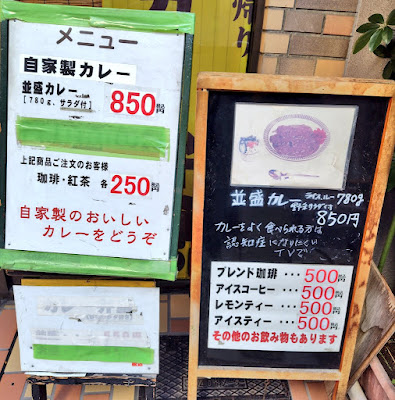 メニュー
自家製カレー
並盛カレー 850円
【780g、サラダ付】
上記商品ご注文のお客様
珈琲・紅茶 各250円
自家製のおいしい
カレーをどうぞ
並盛カレー 780g
850円
カレーをよく食べられる方は
認知症になりにくい
TVで
ブレンド珈琲・・・500円
アイスコーヒー・・・500円
レモンティー・・・500円
アイスティー・・・500円
その他のお飲み物もあります